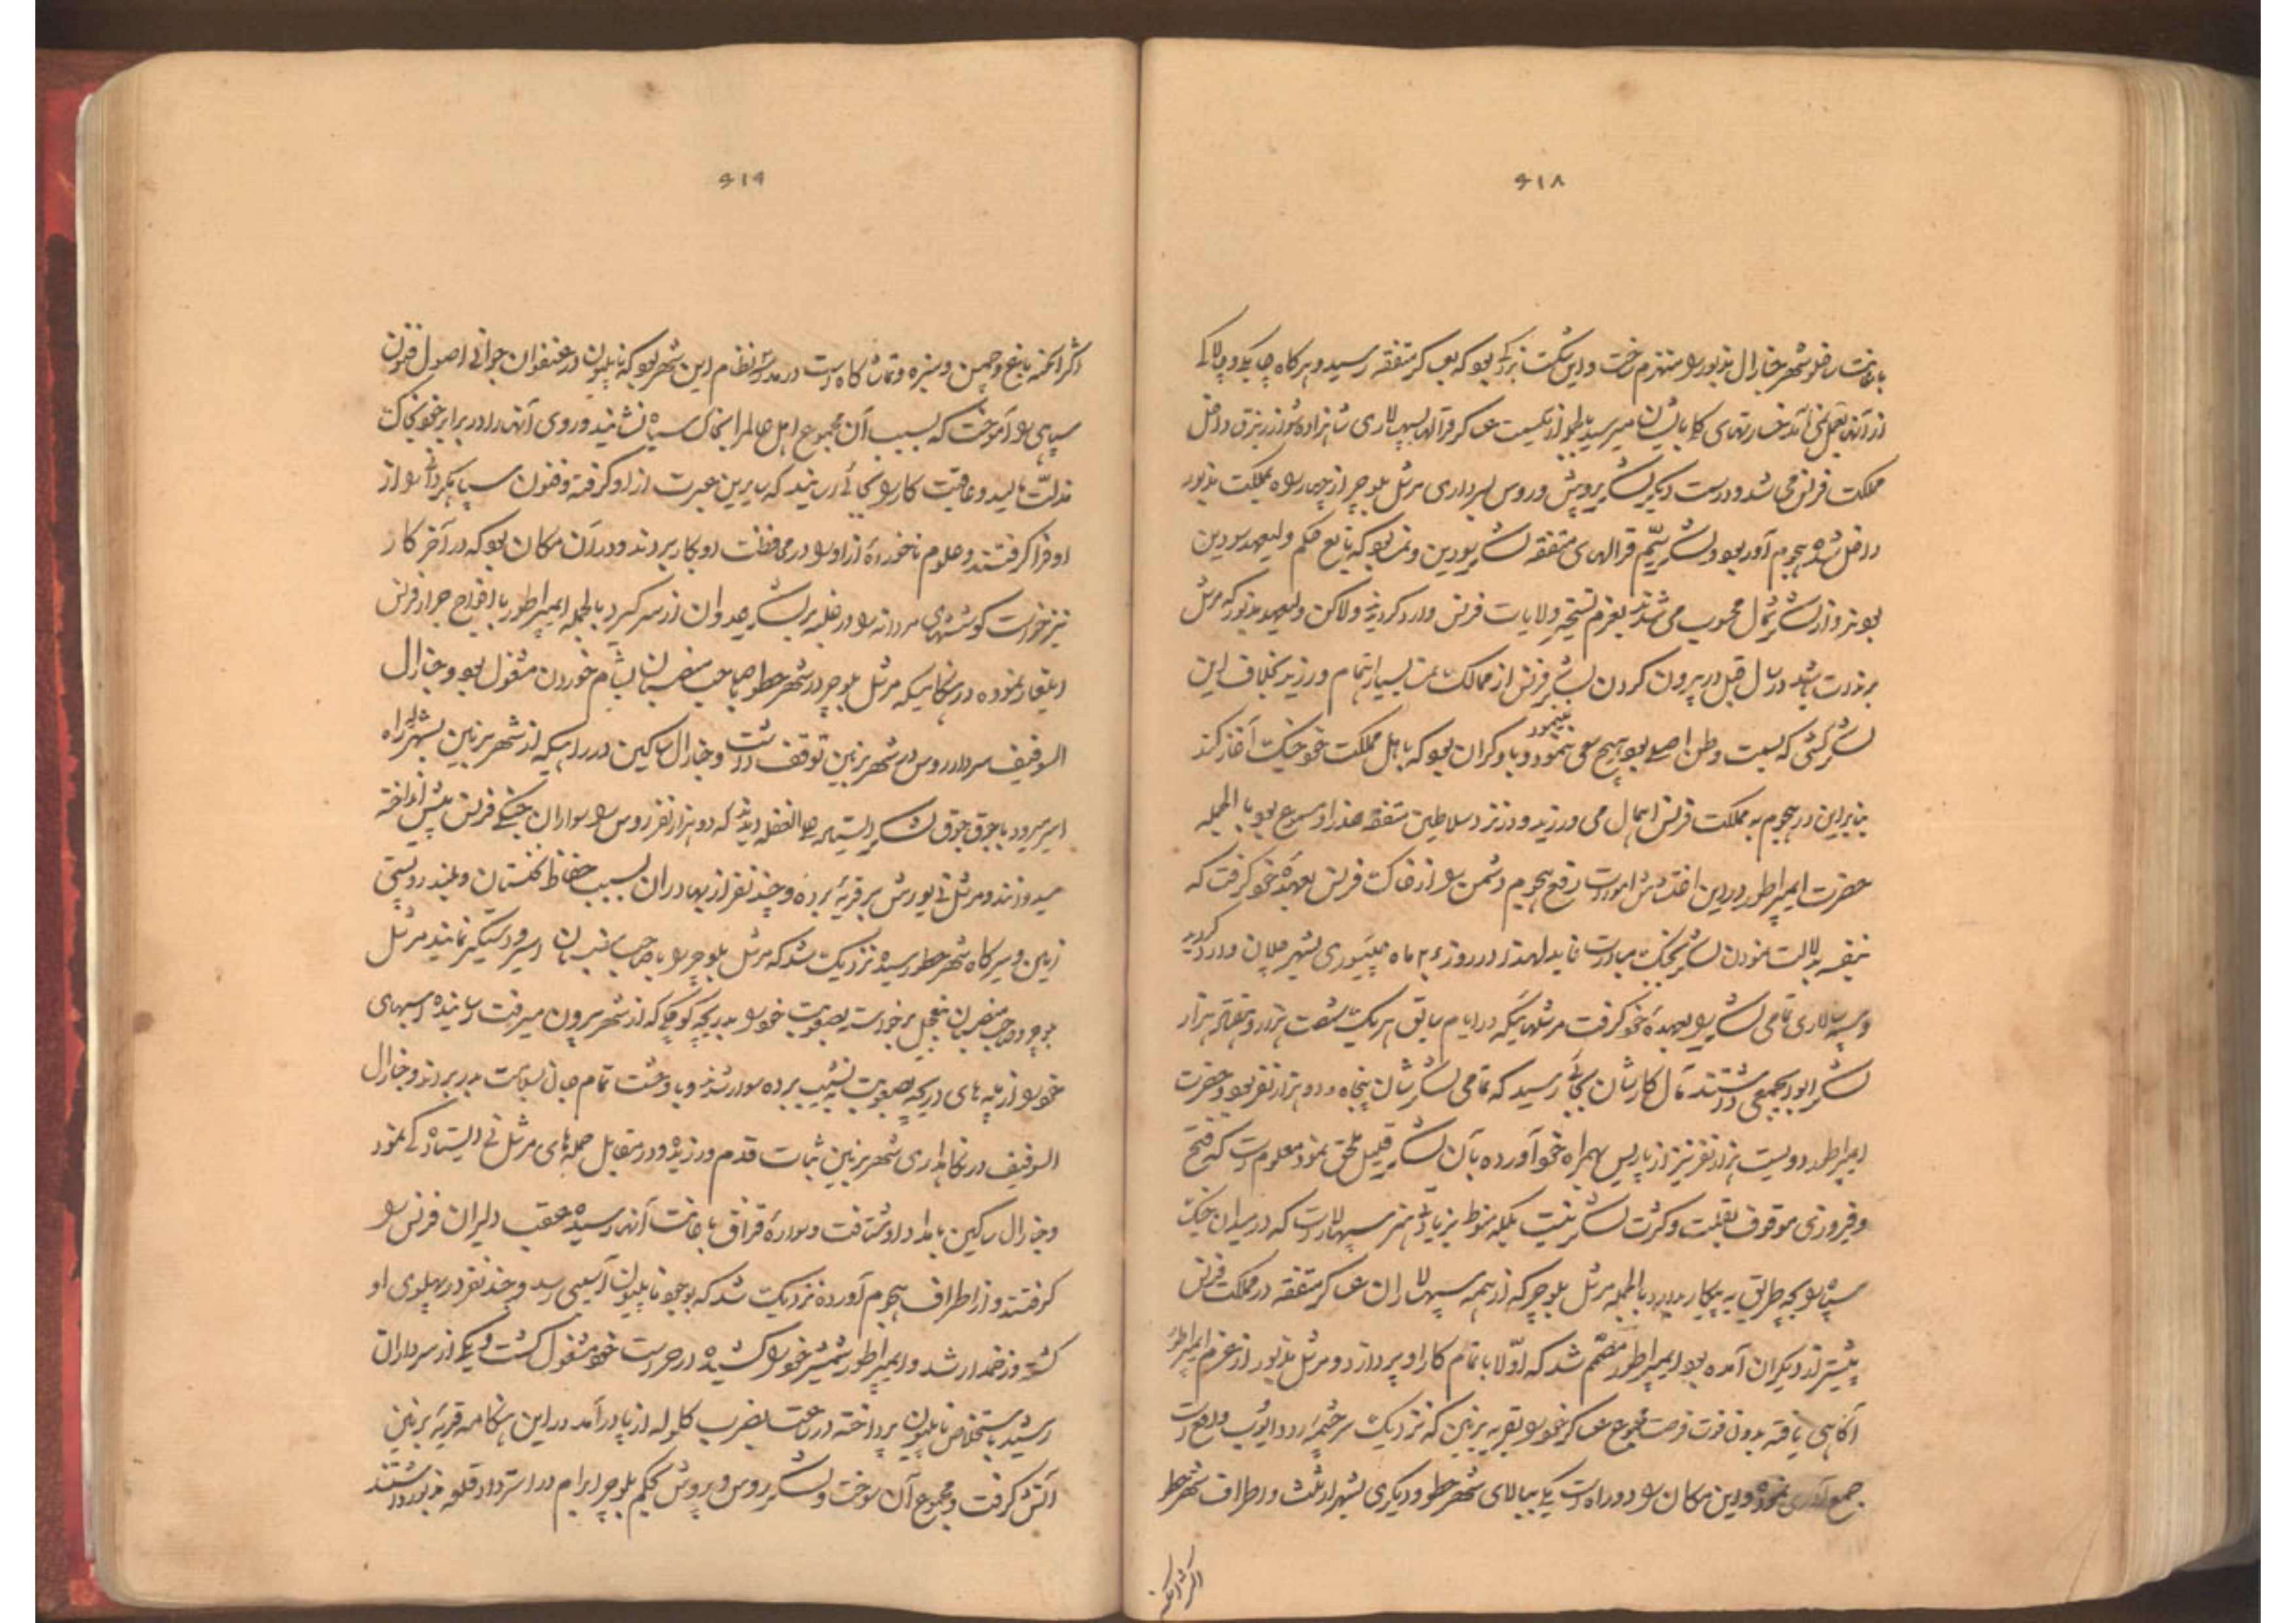 ۶۱۸
باعانت رفقو شهر خارال مذبور را منهزم ساخت و این شکست بزرگی بود که بعساکر متفقه رسید و هر کاه چابکی و چالاکی
از آنها بعمل نمی آمد خسارتهای کلی بایشان میرسید بطور از یکسمت عساکر قرالها بسپهسالاری شاهزاده شوارزنبرق داخل
مملکت فرنس می شد و درسمت دیگر لشکر پروش و روس بسرداری مرشل بلوچر از چهار راه بمملکت مذبور
داخل شده هجوم آور بود و لشکر سیّم قرالهای متفقه لشکر سودین و نمسه بود که تابع حکم ولیعهد سودین
بودند و از لشکر شمال محسوب می شدند بعزم تسخیر ولایات فرنس وارد گردیدند و لاکن ولیعهد مذبور که مرشل
برندت باشد در سال قبل در بیرون کردن لشکر فرنس از ممالک نمسه بسیار اهتمام ورزید بخلاف این
لشکر کشی که بسمت وطن اصلی بود هیچ سعی نمینمود و باو گران بود که باهل مملکت خود جنگ آغاز کند
بنابراین در هجوم به مملکت فرنس اهمال می ورزید و در نزد سلاطین متفقه عذر او مسموع بود بالجمله
حضرت ایمپراطور در این اغتشاش امورات رفع هجوم دشمن را از خاک فرنس بعهدهٔ خود گرفت که
بنفسه بدلالت نمودن لشکر بجنگ مبادرت نماید لهذا در روز ۲۶ ماه جنیوری بشهر چلان وارد گردید
و سپه سالاری تمامی لشکر را بعهدهٔ خود گرفت مرشلهائیکه در ایام سابق هر یک شصت هزار و هفتاد هزار
لشکر ابوابجمعی داشتند مآل کارشان بجائی رسید که تمامی لشکرشان پنجاه و دو هزار نفر بود و حضرت
ایمپراطور دویست هزار نفر نیز از پاریس بهمراه خود آورده بآن لشکر قلیل ملحق نمود معلوم است که فتح
و فیروزی موقوف بقلّت و کثرت لشکر نیست بلکه منوط بزیادتی هنر سپهسالار است که در میدان جنگ
سپاه را بچه طریق به پیکار بدارد بالجمله مرشل بلوچر که از همه سپهسالاران عساکر متفقه در مملکت فرنس
پیشتر از دیگران آمده بود ایمپراطور مصمّم شد که اوّلا باتمام کار او پردازد و مرشل مذبور از عزم ایمپراطور
آگاهی یافته بدون فوت فرصت مجموع عساکر خود را بقریه برنین که نزدیک سرچشمهٔ رود ایوب واقع است
جمع آوری نموده و این مکان را دو راه است یکی ببالای شهر حطو و دیگری بشهر ارثلث و اطراف شهر حط
اکثر امکنه
۶۱۹
اکثر امکنه باغ و چمن و سبزه و تماشاکاه است در مدرسهٔ نظام این شهر بود که ناپلیون در عنفوان جوانی اصول فنون
سپاهی را آموخت که بسبب آن مجموع اهل عالم را بخاک سیاه نشانید و روی آنها را در برابر خود بخاک
مذلّت مالید و عاقبت کار را بجائی رسانید که سایرین عبرت از او گرفته و فنون سپاهگردانی را از
او فرا گرفتند و علوم ماخوذهٔ از او را در محافظت او بکار بردند و در آن مکان بود که در آخر کار
نیز خواست کوششهای مردانه را در غلبه بر لشکر عدوان از سر گیرد بالجمله ایمپراطور با افواج جرار فرنس
ایلغار نموده در هنگامیکه مرشل بلوچر در شهر حطو با صاحب منصبان بشام خوردن مشغول بود و جنارال
السوفیف سردار روس در شهر برنین توقف داشت و جنارال ساکین در راهیکه از شهر برنین بشهر لزراه
اسیر میرود با جوق جوق لشکر ایستاده علی الغفله دیدند که دو هزار نفر روس را سواران جنگی فرنس پیش انداخته
میدوانند و مرشل نی یورش بر قریهٔ برده و چند نفر از بهادران بسبب حفاظ گلستان و بلند و پستی
زمین و سیرگاه شهر حطو رسیده نزدیک شد که مرشل بلوچر را با صاحب منصبان اسیر و دستگیر نمایند مرشل
بلوچر و صاحب منصبان بتعجیل برخواسته بصعوبت خود را بدریچه کوچکی که از شهر بیرون میرفت رسانیده اسبهای
خود را از پله های دریچه بصعوبت بنشیب برده سوار شدند و با وحشت تمام جان بسلامت بدر بردند و جنارال
السوفیف در نگاهداری شهر برنین ثبات قدم ورزیده و در مقابل حمله های مرشل نی ایستادگی نمود
و جنارال ساکین بامداد او شتافت و سوارهٔ قزاق باعانت آنها رسیده عقب دلیران فرنس را
گرفتند و از اطراف هجوم آورده نزدیک شد که بوجود ناپلیون آسیبی رسد و چند نفر در پهلوی او
کشته و زخمدار شد و ایمپراطور شمشیر خود را کشیده در حراست خود مشغول گشت و یکی از سرداران
رشید باستخلاص ناپلیون پرداخته در ساعت بضرب گلوله از پا درآمد در این هنگامه قریهٔ برنین
آتش گرفت و مجموع آن سوخت و لشکر روس و پروش بحکم بلوچر ابرام در استرداد قلعه مذبور داشتند